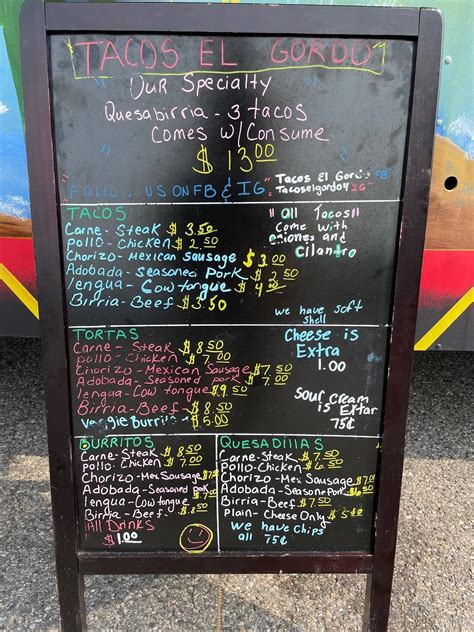 TACOS EL GORDO
OUR Specialty
Quesabirria - 3 tacos
Comes w/Consume
$ 13.00
Follow US ON FB & IG "Tacos El Gordo" FB
"Tacoselgordo4" IG
TACOS
Carne - Steak $ 3.50
Pollo - Chicken $ 2.50
Chorizo - Mexican Sausage $ 3.00
Adobada - Seasoned Pork $ 2.50
lengua - Cow tongue $ 4.00
Birria - Beef $ 3.50
"All Tacos"
Come with
oniones and
Cilantro
we have soft
shell
TORTAS
Carne - Steak $ 8.50
Pollo - Chicken $ 7.00
Chorizo - Mexican Sausage $ 7.50
Adobada - Seasoned pork $ 7.00
lengua - Cow tongue $ 9.50
Birria - Beef $ 8.50
Veggie Burrito $ 5.00
Cheese is
Extra
1.00
Sour Cream
is Extar
75¢
BURRITOS
Carne - Steak $ 8.50
Pollo - Chicken $ 7.00
Chorizo - Mex Sausage
Adobada - Seasoned Pork
lengua - Cow tongue
Birria - Beef $ 8.50
All Drinks
$1.00
QUESADIllAS
Carne - Steak $ 7.50
Pollo - Chicken $ 6.50
Chorizo - Mex Sausage $ 7.00
Adobada - Seasoned Pork $ 6.50
Birria - Beef $ 7.50
Plain - Cheese Only $
we have Chips
all 75¢